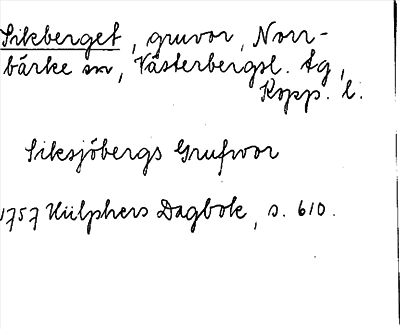 Sikberget, gruvor, Norr-
bärke sn, Västerbergsl. tg,
Kopp. l.
Siksjöbergs Grufvor
1757 Hülphers Dagbok, s. 610.